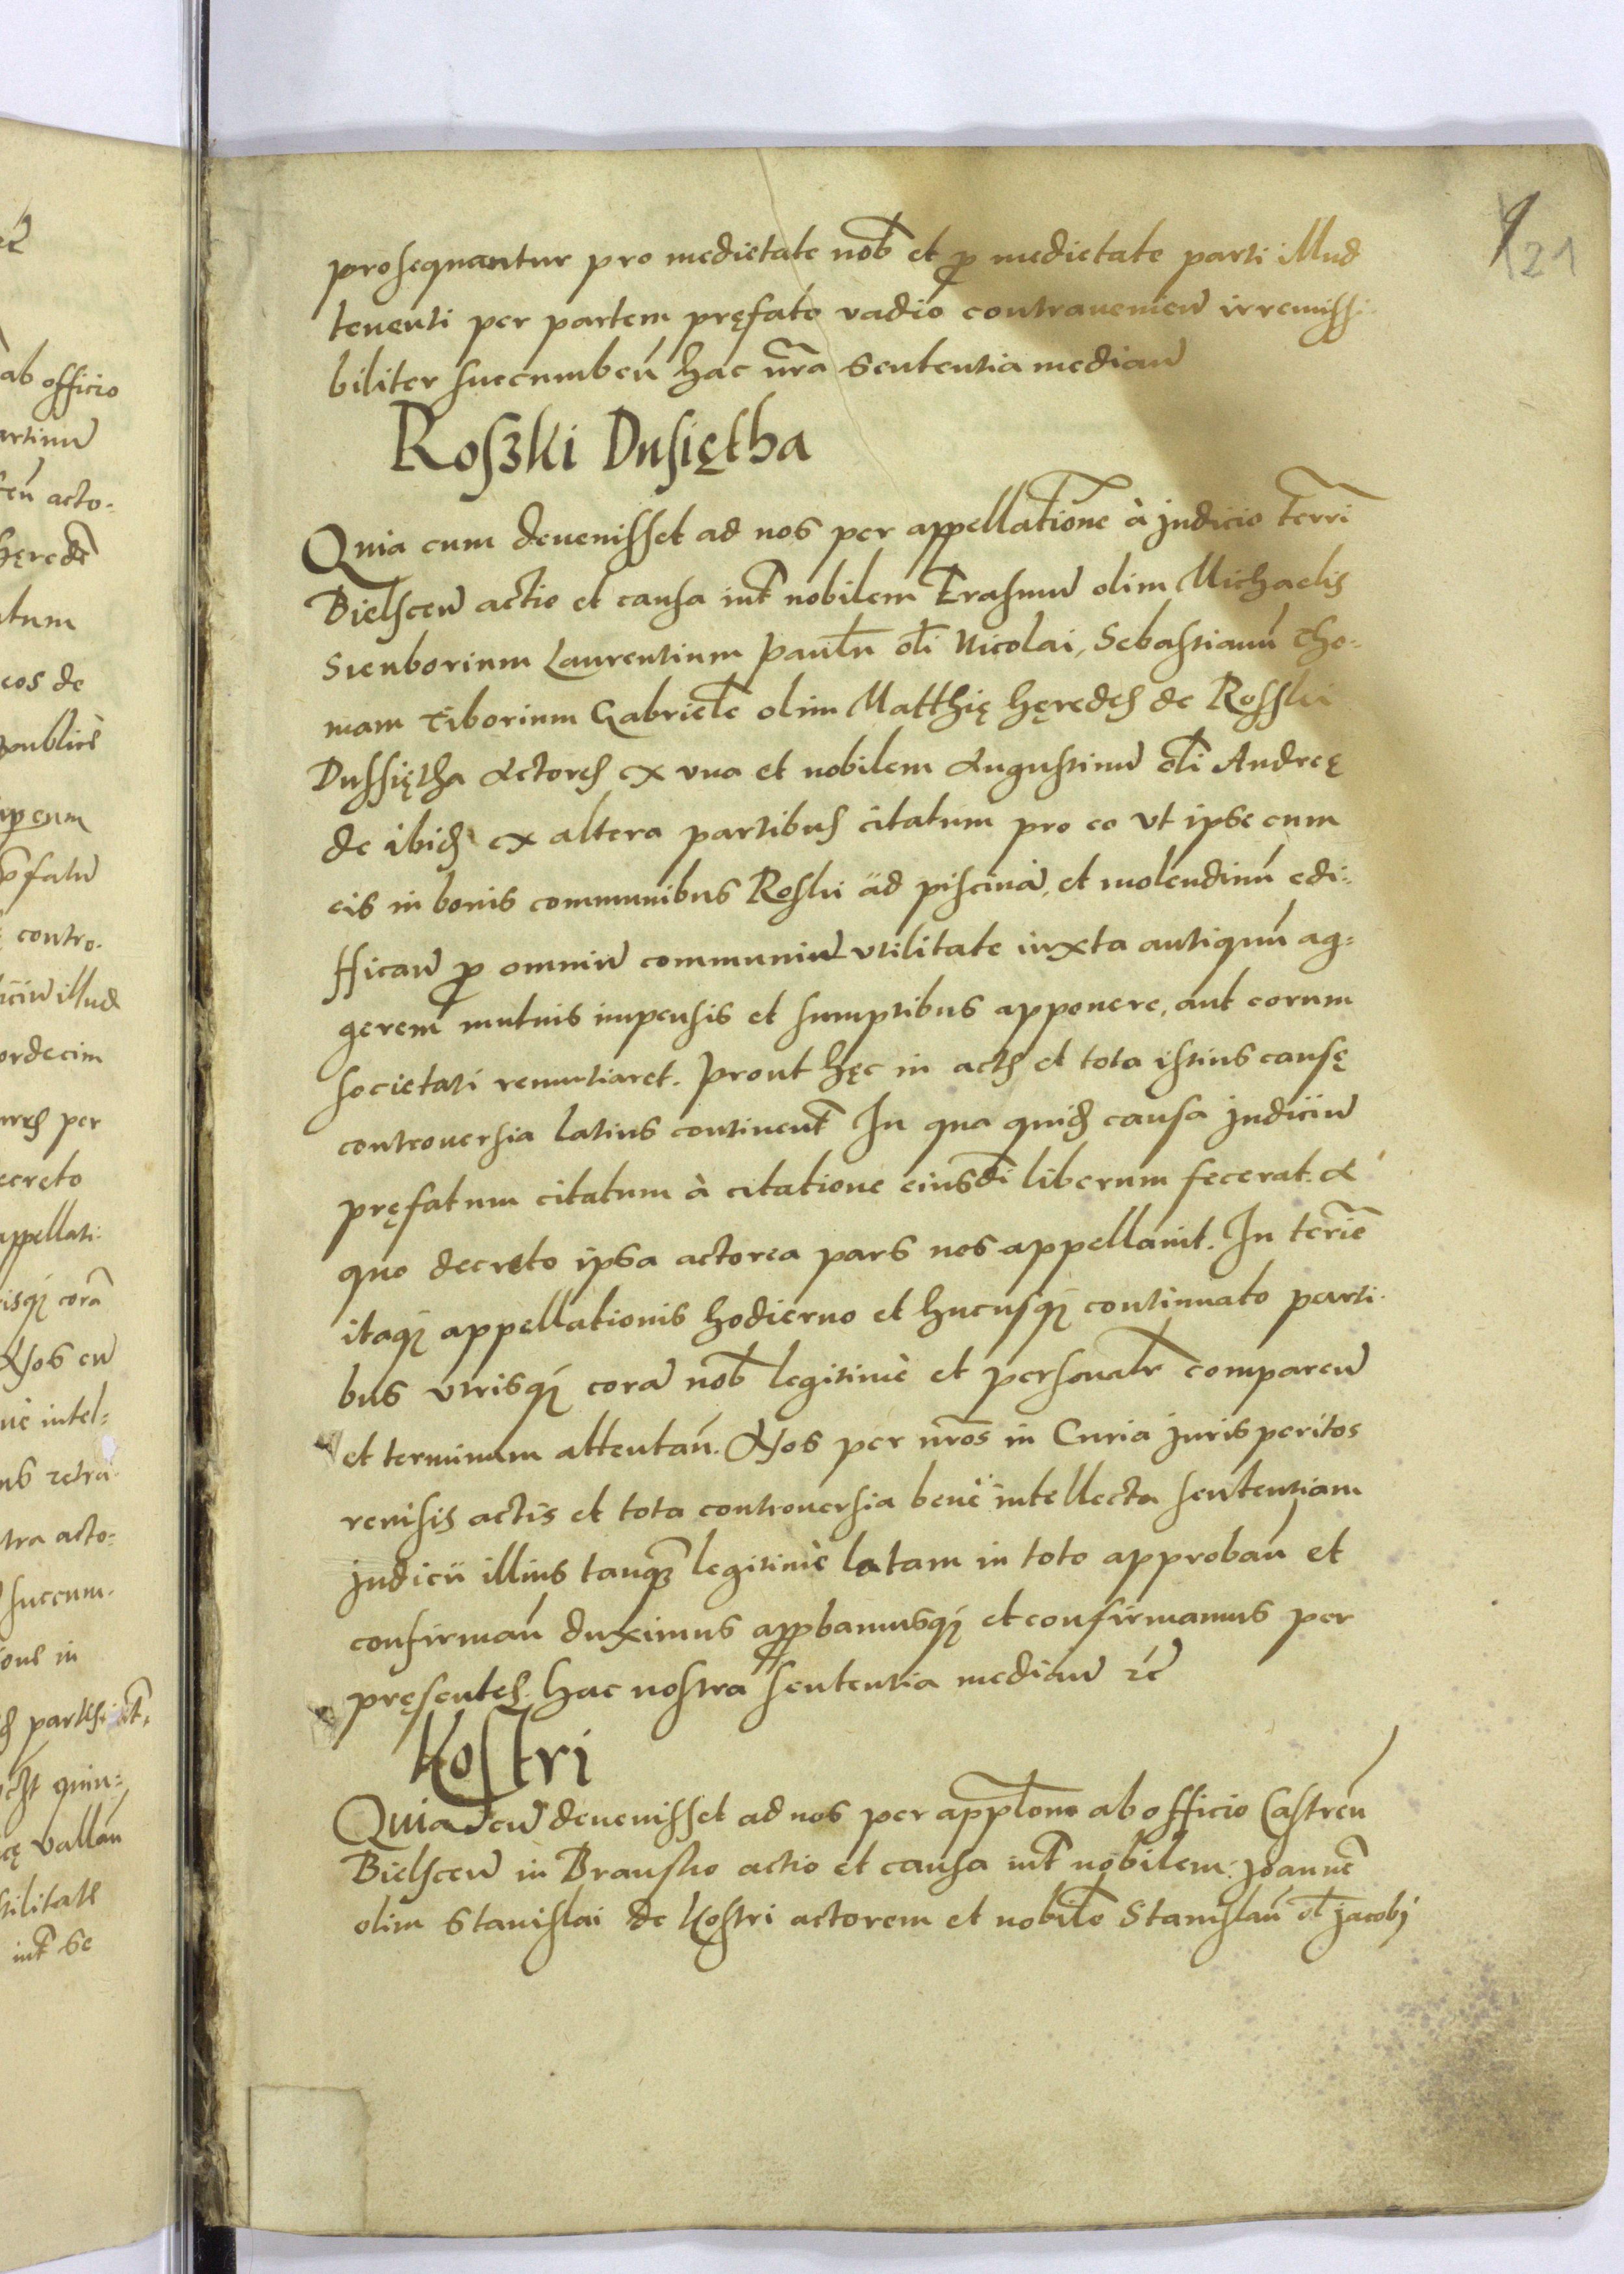 prosequantur pro medietate nob̄ et ꝓ medietate parti illud
tenenti per partem pręfato vadio contraueniēn irremissi-
biliter succumbeń hac nr̄a sententia median̄
Rosʒki Dusiętha
Quia cum deuenisset ad nos per appellationē à judicio terrī
Bielscen̄ actio et causa int̄ nobilem Erasmū olim Michaelis
Stenborium Laurentium Paulū oli Nicolai, Sebastianū Tho-
mam Tiborium Gabrielē olim Matthię hęredes de Rosski
Dussiętha Actores ex vna et nobilem Augustinū oli Andreę
de ibid ex altera partibus citatum pro eo vt ipse cum
eis in bonis communibus Roski ad piscinā, et molendinū edi-
fficań ꝓ omniū communiū vtilitate iuxta antiquū ag-
gerem mutuis impensis et sumptibus apponere, aut eorum
societati renuntiaret. Prout hęc in actis et tota istius causę
controuersia latius continent̄ In qua quid causa judiciū
pręfatum citatum à citatione eiusdī liberum fecerat. A
quo decreto ipsa actorea pars nos appellauit. In ter̄ie
itaqꝫ appellationis hodierno et hucusqꝫ continuato parti-
bus vtrisqꝫ corā nob̄ legitimè et personalr̄ comparen̄
et terminum attentań. Nos per nr̄os in Curia juris peritos
reuisis actis et tota controuersia benè intellecta sententiam
judicii illius tanqꝫ legitimè latam in toto approbań et
confirmań duximus apꝓbamusqꝫ et confirmamus per
pręsentes. hac nostra sententia median̄ ꝛc̄
Kostri
Quia cū deuenisset ad nos per appl̄one ab officio Castreń
Bielscen̄ in Bransko actio et causa int̄ nobilem Joannē
olim Stanislai de Kostri actorem et nobilē Stanislaū ol̄ Jacobj
21
ab officio
acto-
hęredē
eos de
contro-
illud
per
ecreto
appellati-
corā
Nos cū
intel-
retra-
acto-
succum-
in
quin-
vallań
int̄ se